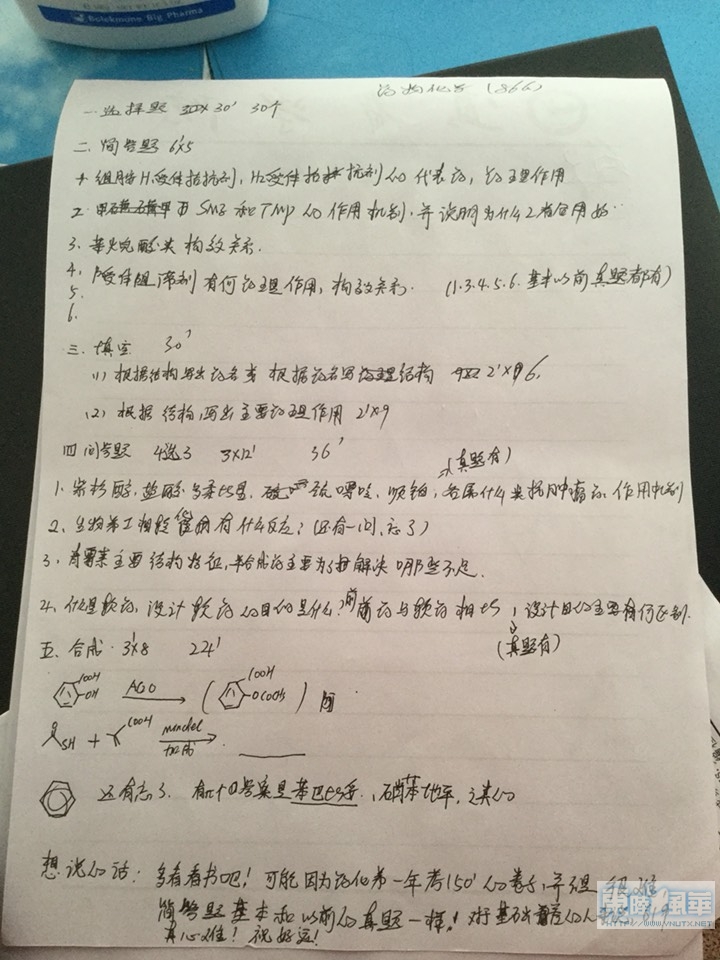 Bolekmoune Big Pharma
药物化学 (866)
一.选择题 30' 30个
二.简答题 6'x5
1.组胺H1受体拮抗剂,H2受体拮抗剂的代表药,药理作用
2. SMZ和TMP的作用机制,并说明为什么2者合用好
3.苯火完酸类构效关系.
4. β受体阻滞剂有何药理作用,构效关系. (1.3.4.5.6.基本以前真题都有)
5.
6.
三.填空 30'
(1)根据结构写出药名 根据药名写结构 2'x6
(2)根据结构,写出主要药理作用 2'x9
四问答题 4选3 3x12' 36'
(真题有)
1.紫杉醇,盐酸多柔比星, 巯嘌呤,顺铂,各属什么类抗肿瘤药,作用机制
2.生物 I相 有什么反应?(还有一问,忘了)
3.青霉素主要结构特征,半合成药主要为了解决哪些不足.
4.什么是软药,设计软药的目的是什么?前药与软药相比,设计目的主要有何区别.
(真题有)
五.合成. 3'x8 24'
COOH OH AC2O COOH OCOCH3
SH + COOH michael 加成
还有忘了. 有几个答案是苯巴比妥,硝苯地平,之类的
想说的话:多看看书吧!可能因为药化第一年考150'的卷子,并不是很难
简答题基本和以前的真题一样!对于基础 的人
真心难!祝好运!
WWW.YNUTX.NET